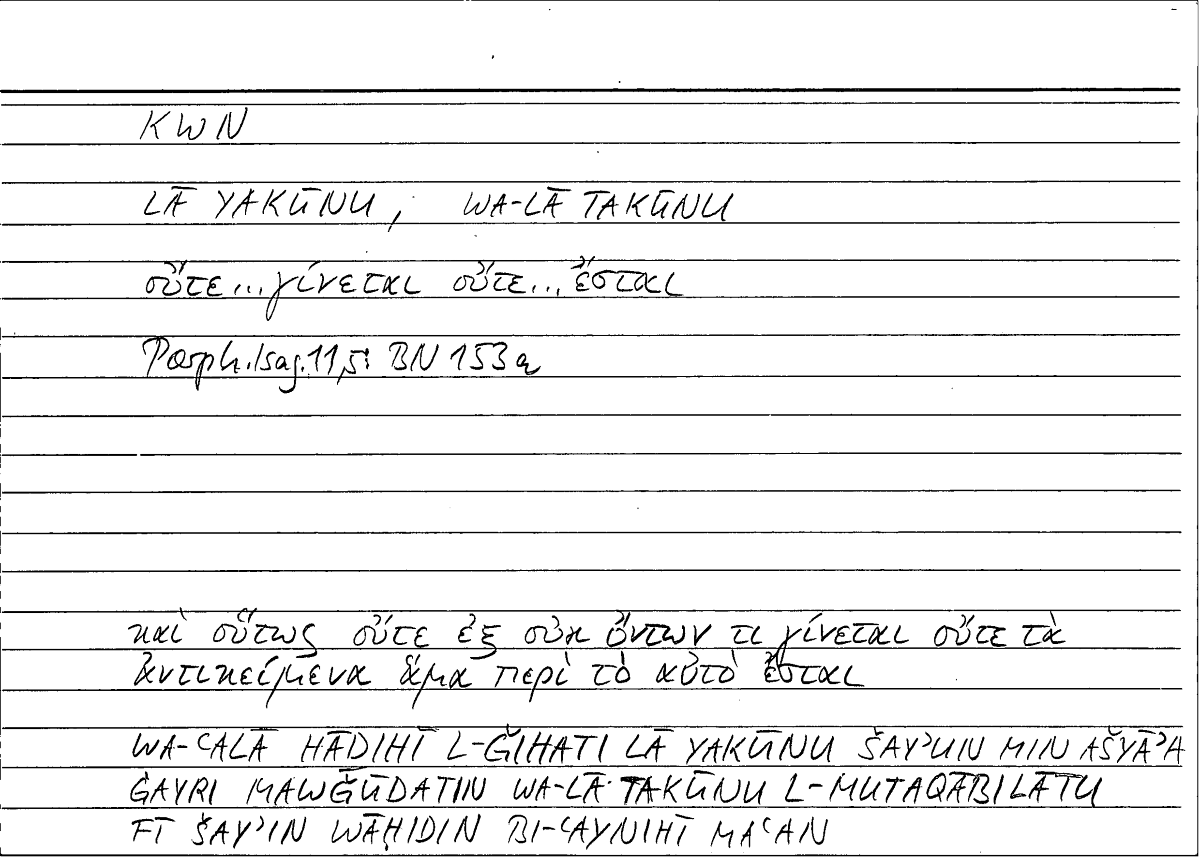 KWN
LĀ YAKŪNU, WA-LĀ TAKŪNU
οὔτε...γίνεται οὔτε...ἔσται
Porph. Isag. 11,5: BN 153a
καὶ οὕτως οὔτε ἐξ οὐκ ὄντων τι γίνεται οὔτε τὰ
ἀντικείμενα ἅμα περὶ τὸ αὐτὸ ἔσται
WA-ʿALĀ HĀDIHĪ L-ǦIHATI LĀ YAKŪNU ŠAYʾUN MIN AŠYĀʾA
ĠAYRI MAWǦŪDATIN WA-LĀ TAKŪNU L-MUTAQĀBILĀTU
FĪ ŠAYʾIN WĀḤIDIN BI-ʿAYNIHĪ MAʿAN